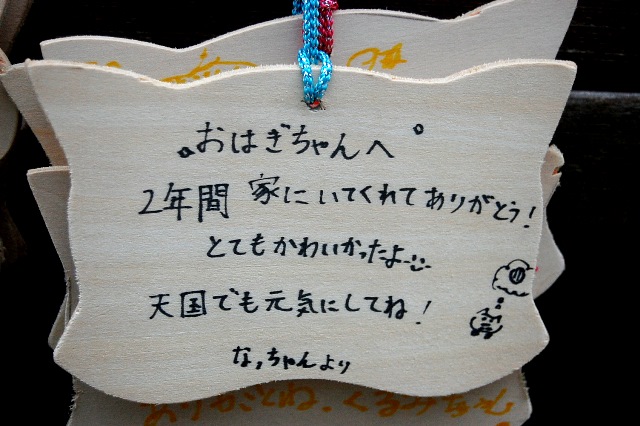 おはぎちゃんへ
2年間 家にいてくれてありがとう!
とてもかわいかったよ
天国でも元気にしてね!
なっちゃんより
ありがとね、くるみちゃん